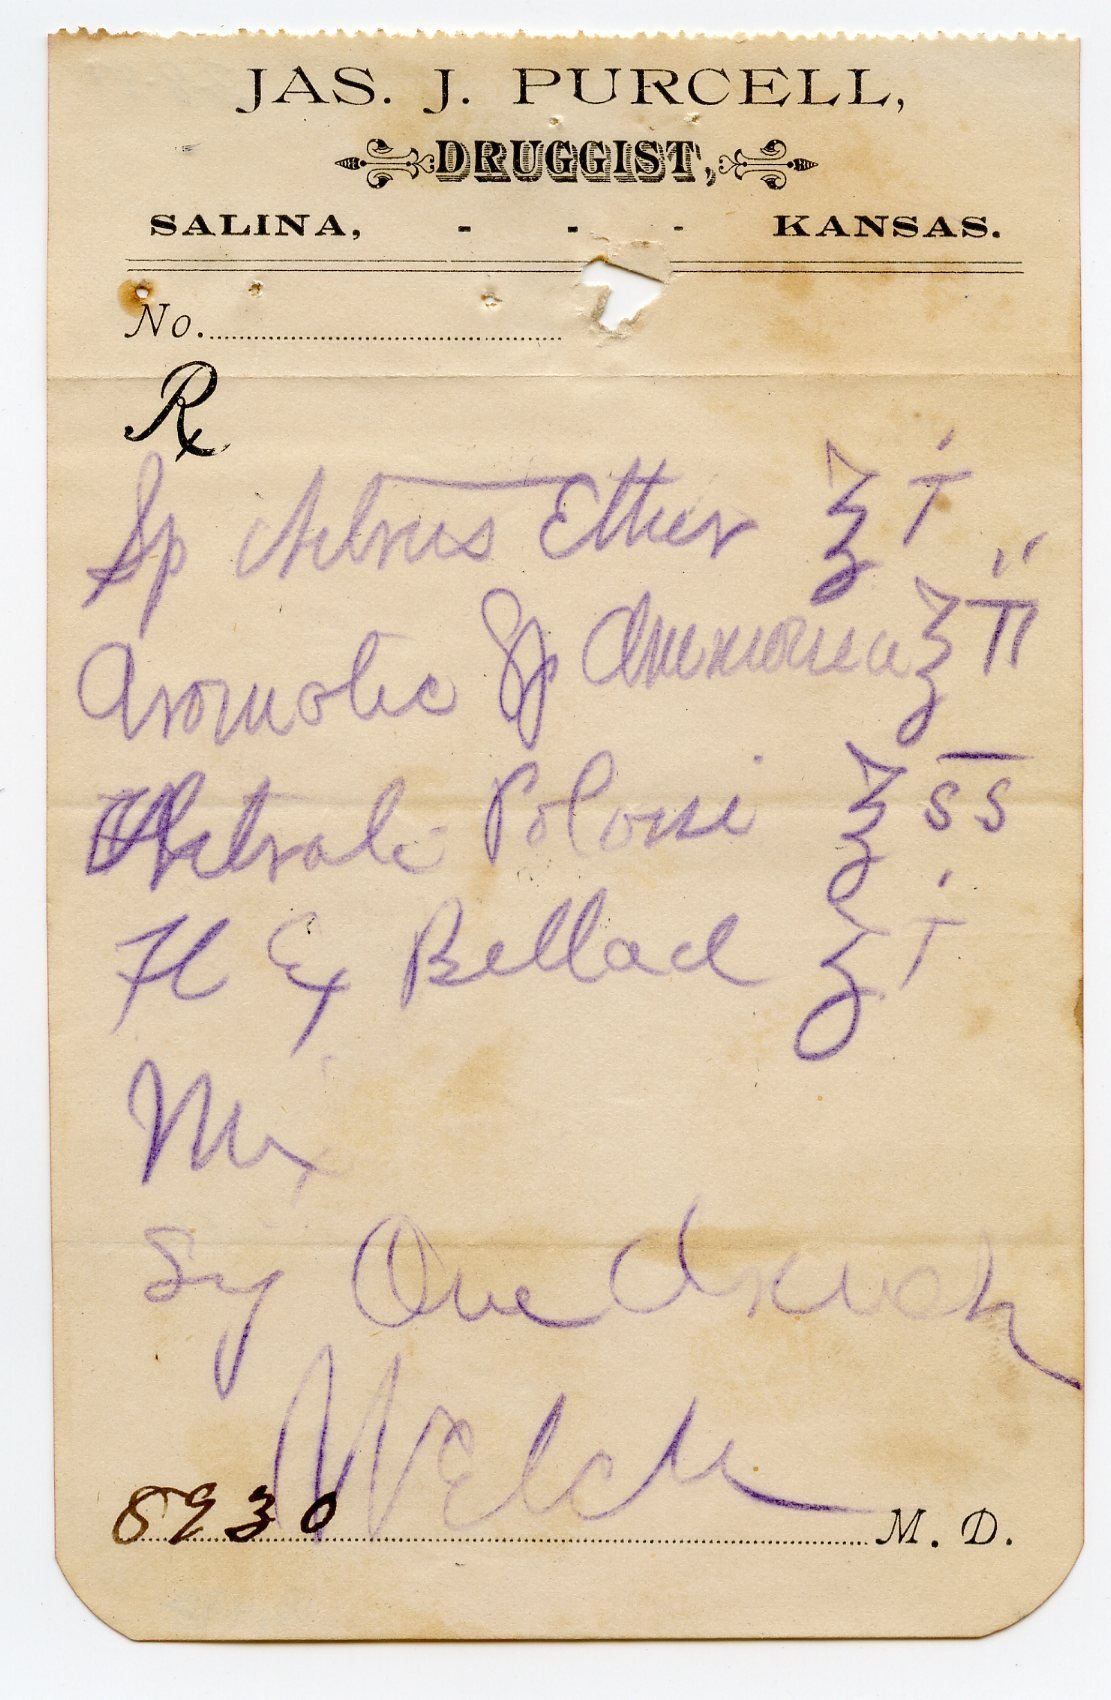 JAS. J. PURCELL,
DRUGGIST,
SALINA, - - - KANSAS.
No.
Rx
Sp Nitrus Ether ʒ i
Aromatic Sp Ammonia ʒ ii
Nitrate ʒ ss
Fl Ex Bellad ʒ i
Mix
Sig One drach
Welch
8930 M. D.